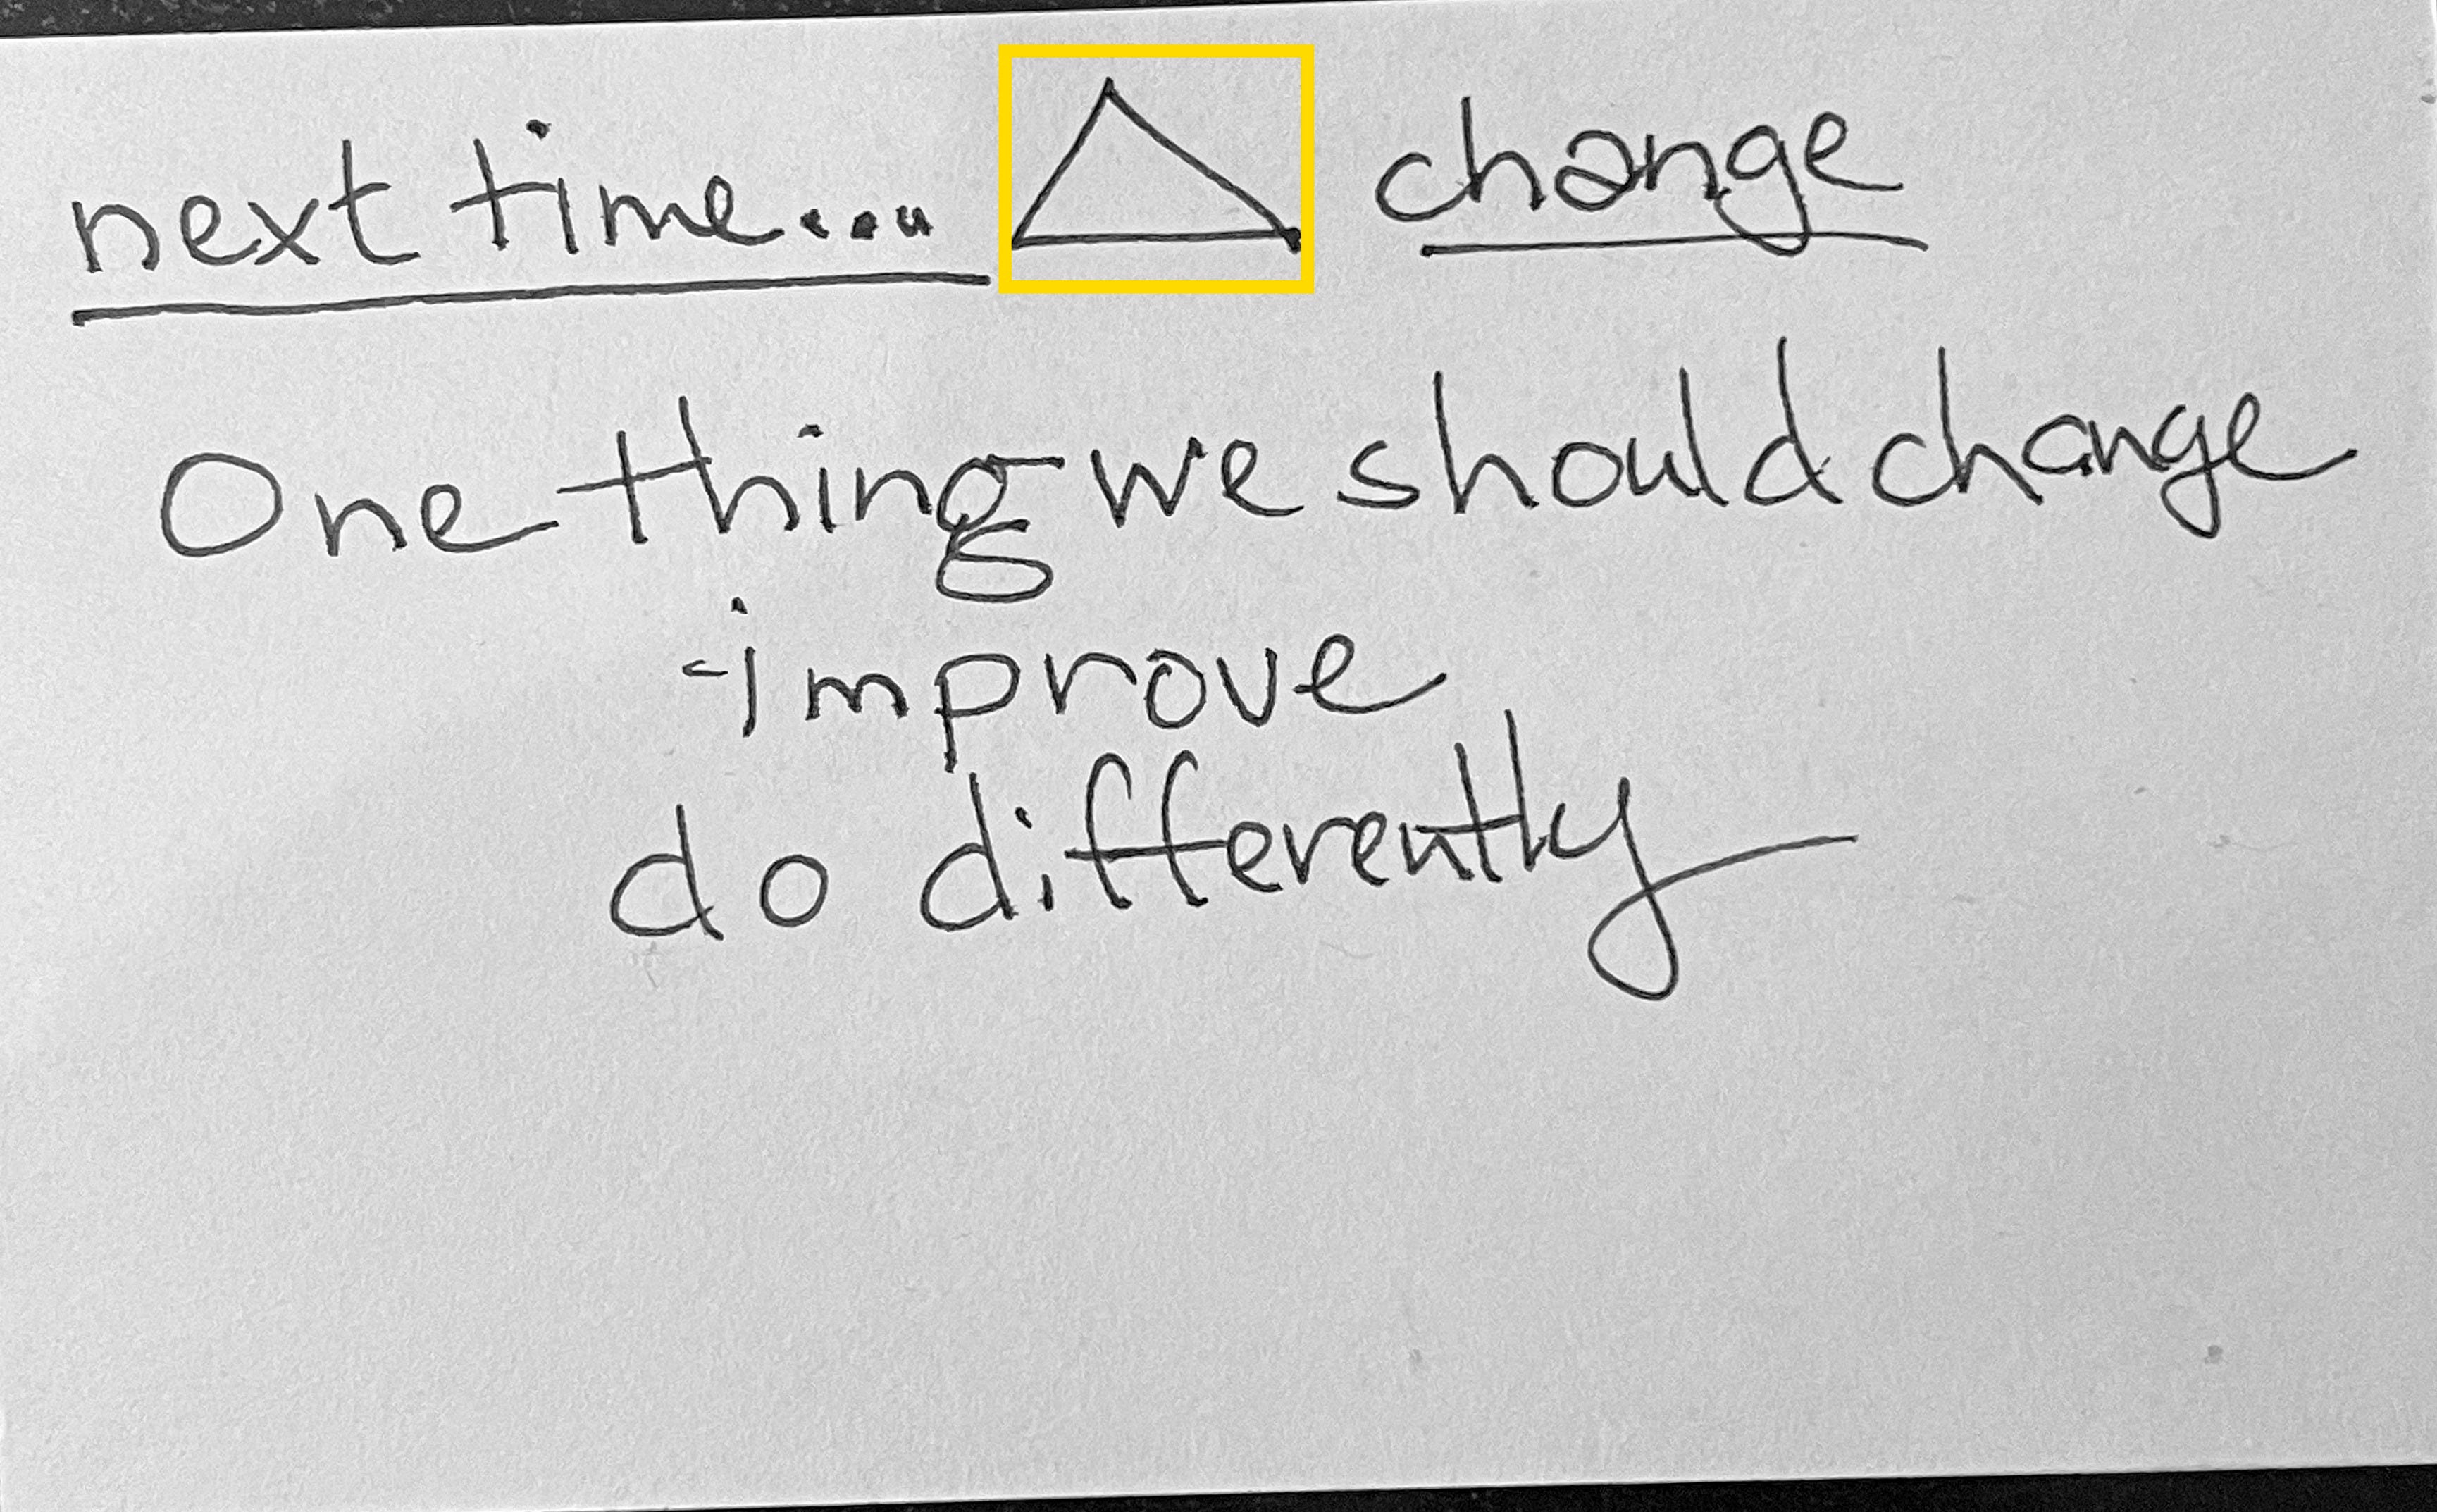 next time... △ change
One thing we should change
-improve
do differently